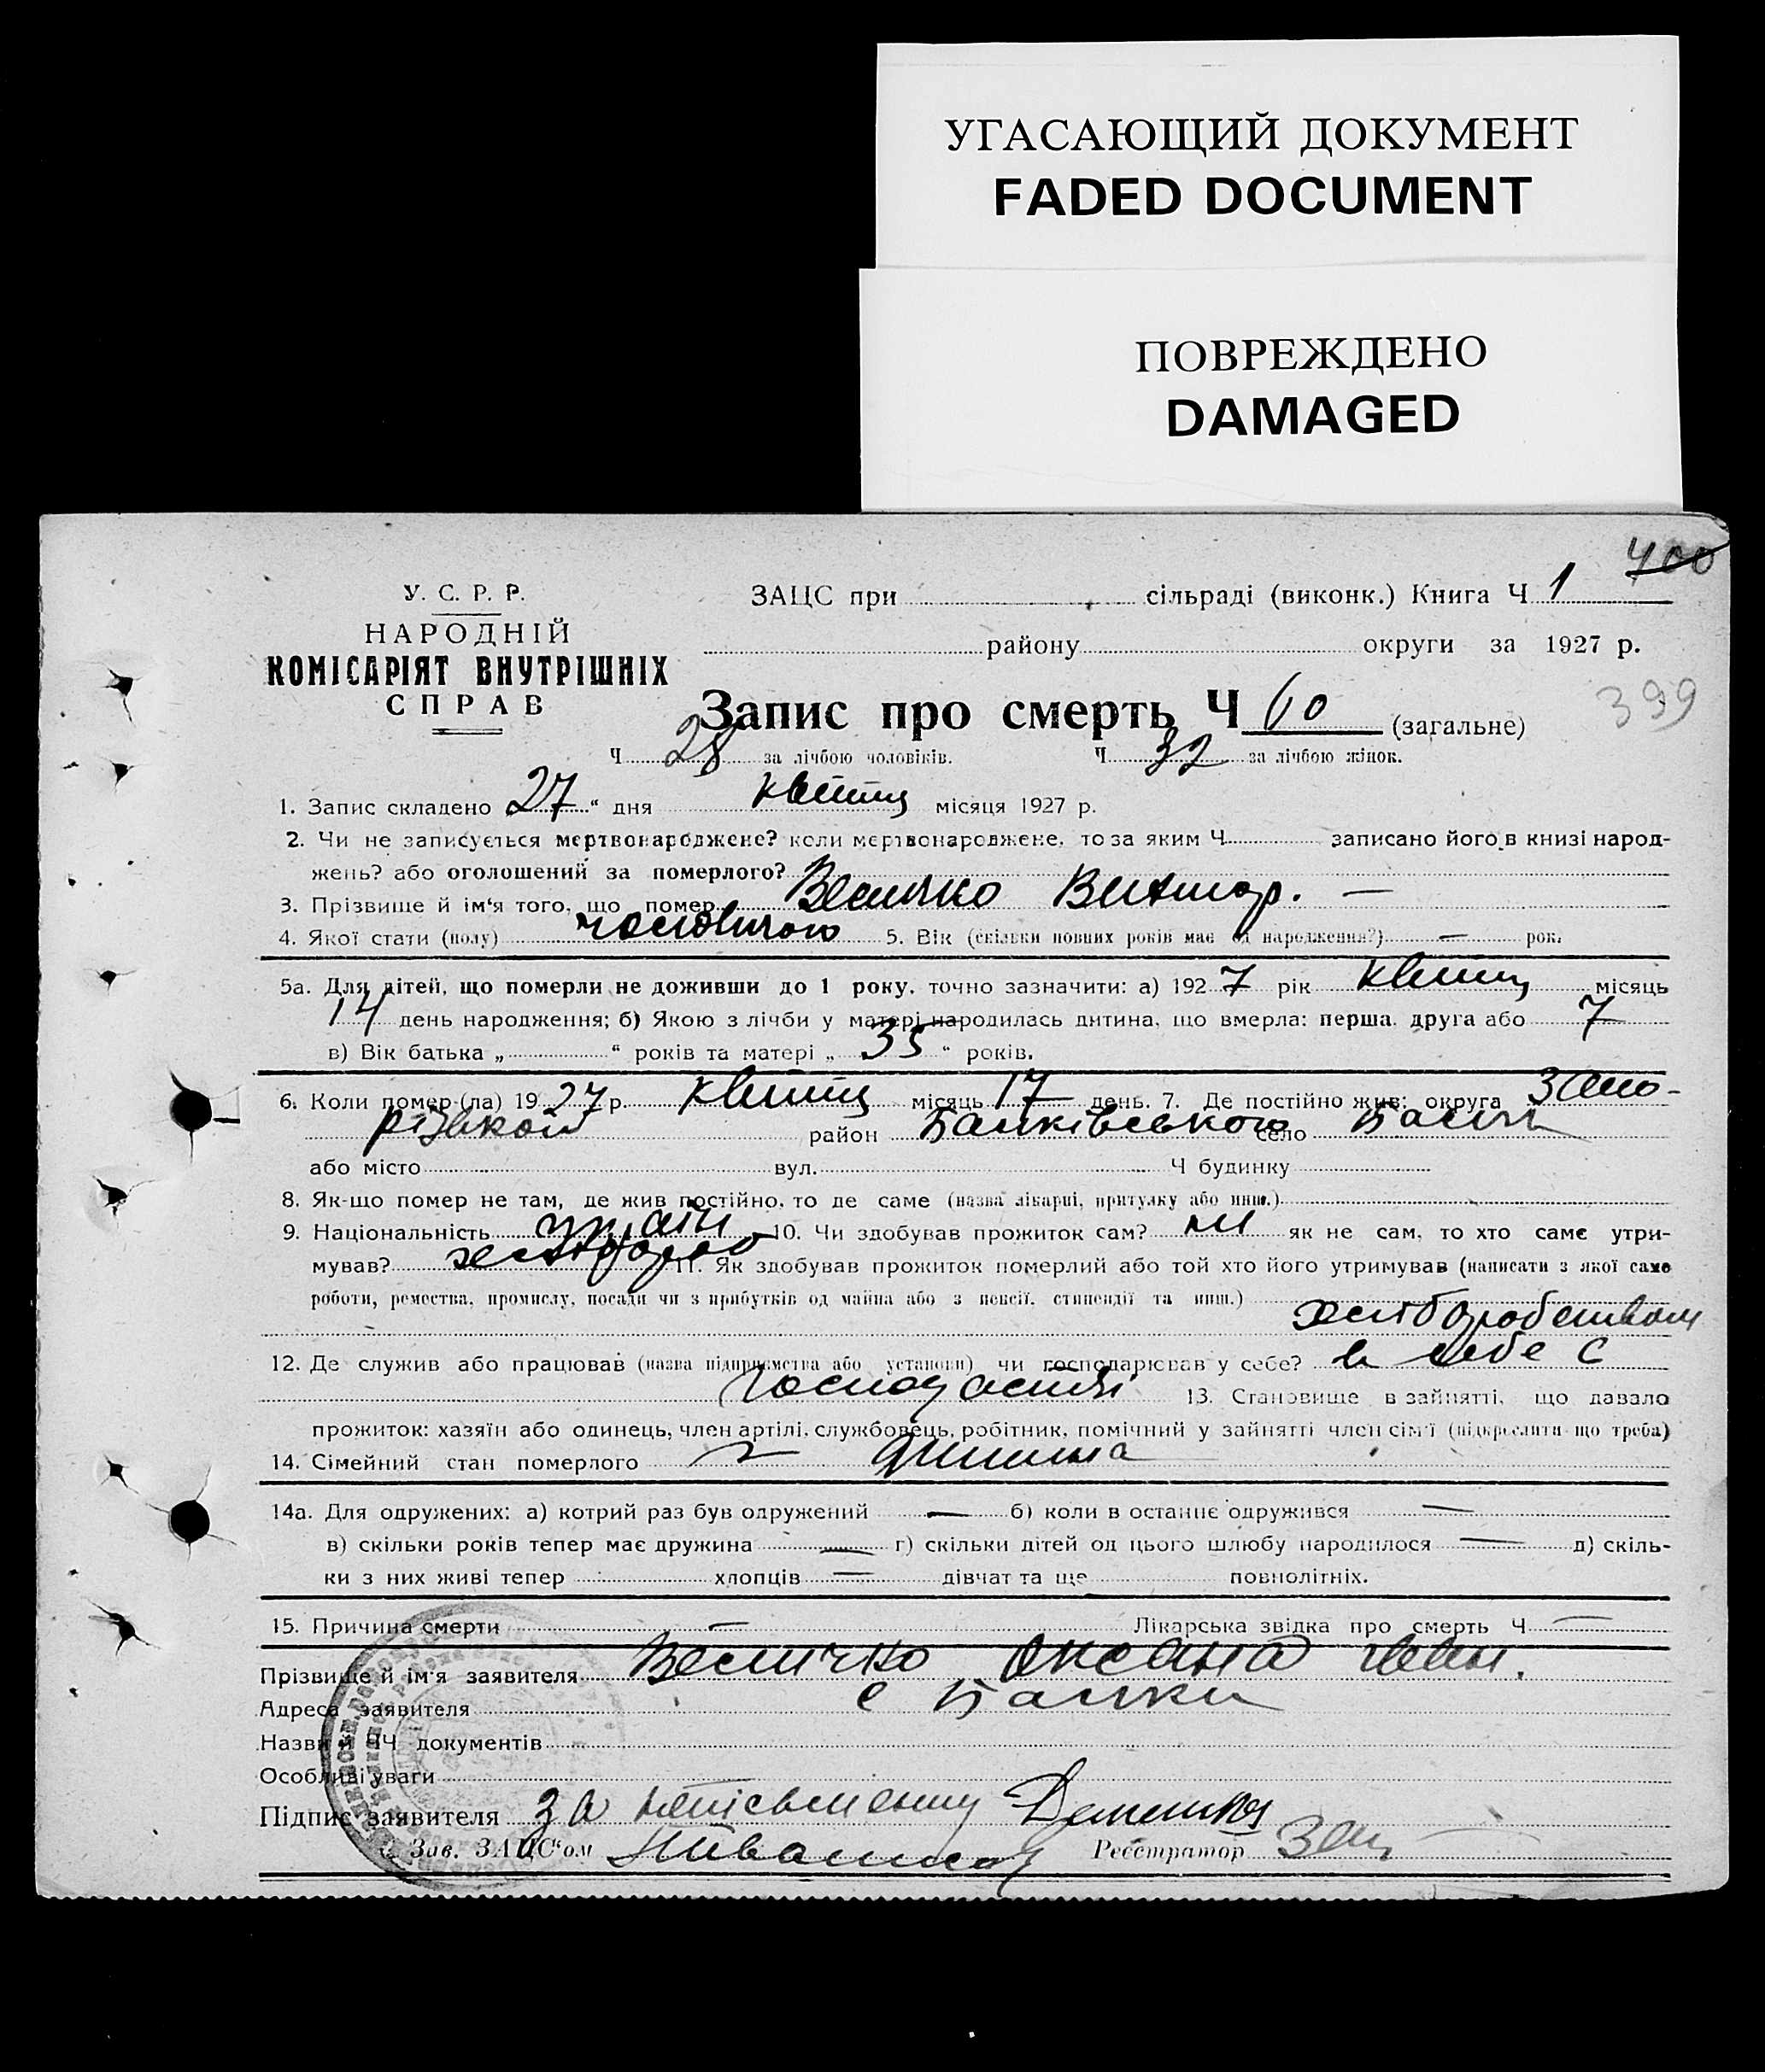 УГАСАЮЩИЙ ДОКУМЕНТ
FADED DOCUMENT
ПОВРЕЖДЕНО
DAMAGED
400
У. С. Р. Р. ЗАЦС при сільраді (виконк.) Книга Ч 1
НАРОДНІЙ
КОМІСАРІЯТ ВНУТРІШНІХ
СПРАВ
району округи за 1927 р.
399
Запис про смерть Ч 60 (загальне)
Ч 28 за лічбою чоловіків. Ч 32 за лічбою жінок.
1. Запис складено 27 “ дня квітня місяця 1927 р.
2. Чи не записується мертвонароджене? коли мертвонароджене, то за яким Ч записано його в книзі народ-
жень? або оголошений за померлого?
3. Прізвище й ім‘я того, що помер Величко Виктор. —
4. Якої стати (полу) чоловічого 5. Вік (скільки повних років має од народження?) — рок.
5а. Для дітей, що померли не доживши до 1 року, точно зазначити: а) 192 7 рік квітня місяць
14 день народження; б) Якою з лічби у матері народилась дитина, що вмерла: перша, друга або 7
в) Вік батька „ “ років та матері „ 35 “ років.
6. Коли помер (ла) 19 27 р. квітня місяць 17 день. 7. Де постійно жив: округа Запо-
різькой район Балківського село Балки
або місто вул. Ч будинку
8. Як-що помер не там, де жив постійно, то де саме (назва лікарні, притулку або инш.)
9. Національність україн 10. Чи здобував прожиток сам? ні як не сам, то хто саме утри-
мував? 11. Як здобував прожиток померлий або той хто його утримував (написати з якої саме
роботи, ремества, промислу, посади чи з прибутків од майна або з пенсії, стипендії та инш.)
хлиборобством
12. Де служив або працював (назва підприємства або установи) чи господарював у себе? в себе С
13. Становище в зайнятті, що давало
прожиток: хазяїн або одинець, член артілі, службовець, робітник, помічний у зайнятті член сім'ї (підкреслити що треба)
14. Сімейний стан померлого дитина
14а. Для одружених: а) котрий раз був одружений — б) коли в останнє одружився —
в) скільки років тепер має дружина — г) скільки дітей од цього шлюбу народилося — д) скіль-
ки з них живі тепер хлопців — дівчат та ще повнолітніх.
15. Причина смерти — Лікарська звідка про смерть Ч —
Прізвище й ім'я заявителя Величко Оксана
Адреса заявителя с Балки
Назви й ЧЧ документів
Особливі уваги
Підпис заявителя За
Зав. ЗАЦС‘ом Реєстратор